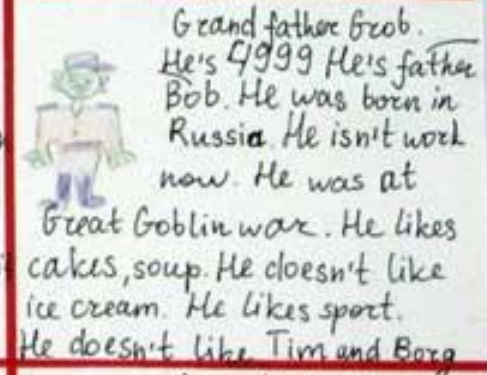 Grand father Grob.
He's 4999 He's father
Bob. He was born in
Russia. He isn't work
now. He was at
Great Goblin war. He likes
cakes, soup. He doesn't like
ice cream. He likes sport.
He doesn't like Tim and Borg